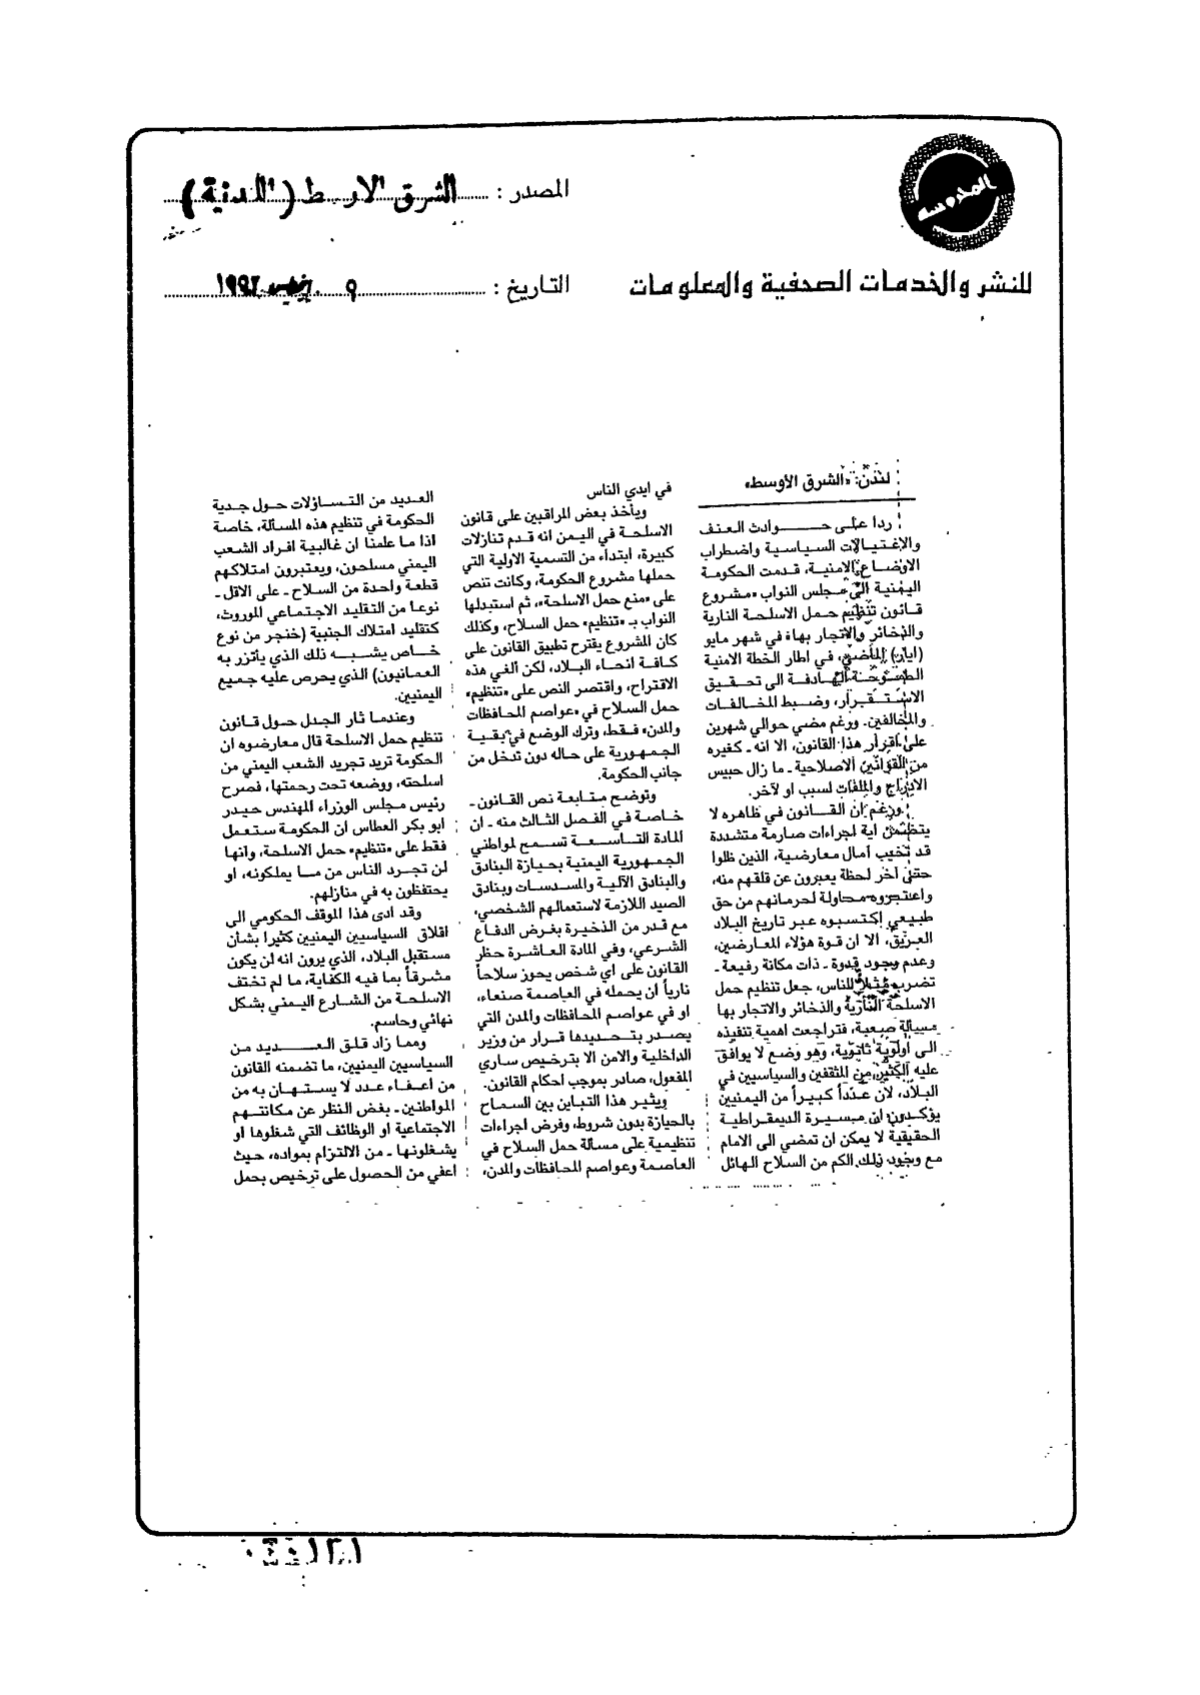 المصدر : الشرق الاوسط (اللندنية)
التاريخ : ٩ يوليو ١٩٩٢
المحروسة
للنشر والخدمات الصحفية والمعلومات
لندن: «الشرق الأوسط»
ردا على حوادث العنف
والاغتيالات السياسية واضطراب
الاوضاع الامنية، قدمت الحكومة
اليمنية الى مجلس النواب «مشروع
قانون تنظيم حمل الاسلحة النارية
والذخائر والاتجار بها» في شهر مايو
(ايار) الماضي، في اطار الخطة الامنية
الهادفة الى تحقيق
الاستقرار، وضبط المخالفات
والمخالفين. ورغم مضي حوالي شهرين
على اقرار هذا القانون، الا انه ـ كغيره
من القوانين الاصلاحية ـ ما زال حبيس
الادراج والملفات لسبب او لآخر.
ورغم ان القانون في ظاهره لا
يتضمن اية اجراءات صارمة متشددة
قد تخيب أمال معارضية، الذين ظلوا
حتى اخر لحظة يعبرون عن قلقهم منه،
واعتبروه محاولة لحرمانهم من حق
طبيعي إكتسبوه عبر تاريخ البلاد
العريق، الا ان قوة هؤلاء المعارضين،
وعدم وجود قدوة ـ ذات مكانة رفيعة ـ
تضرب مثلاً للناس، جعل تنظيم حمل
الاسلحة النارية والذخائر والاتجار بها
مسألة صعبة، فتراجعت اهمية تنفيذه
الى أولوية ثانوية، وهو وضع لا يوافق
عليه الكثير من المثقفين والسياسيين في
البلاد، لأن عدداً كبيراً من اليمنيين
يؤكدون ان مسيرة الديمقراطية
الحقيقية لا يمكن ان تمضي الى الامام
مع وجود ذلك الكم من السلاح الهائل
في ايدي الناس
ويأخذ بعض المراقبين على قانون
الاسلحة في اليمن انه قدم تنازلات
كبيرة، ابتداء من التسمية الاولية التي
حملها مشروع الحكومة، وكانت تنص
على «منع حمل الاسلحة»، ثم استبدلها
النواب بـ «تنظيم» حمل السلاح، وكذلك
كان المشروع يقترح تطبيق القانون على
كافة انحاء البلاد، لكن ألغي هذه
الاقتراح، واقتصر النص على «تنظيم»
حمل السلاح في «عواصم المحافظات
والمدن» فقط، وترك الوضع في بقية
الجمهورية على حاله دون تدخل من
جانب الحكومة.
وتوضح متابعة نص القانون ـ
خاصة في الفصل الثالث منه ـ ان
المادة التاسعة تسمح لمواطني
الجمهورية اليمنية بحيازة البنادق
والبنادق الآلية والمسدسات وبنادق
الصيد اللازمة لاستعمالهم الشخصي،
مع قدر من الذخيرة بغرض الدفاع
الشرعي، وفي المادة العاشرة حظر
القانون على اي شخص يحوز سلاحاً
نارياً أن يحمله في العاصمة صنعاء،
او في عواصم المحافظات والمدن التي
يصدر بتحديدها قرار من وزير
الداخلية والامن الا بترخيص ساري
المفعول، صادر بموجب احكام القانون.
ويثير هذا التباين بين السماح
بالحيازة بدون شروط، وفرض اجراءات
تنظيمية على مسألة حمل السلاح في
العاصمة وعواصم المحافظات والمدن،
العديد من التساؤلات حول جدية
الحكومة في تنظيم هذه المسألة، خاصة
اذا ما علمنا ان غالبية افراد الشعب
اليمني مسلحون، ويعتبرون امتلاكهم
قطعة واحدة من السلاح ـ على الاقل ـ
نوعا من التقليد الاجتماعي الموروث،
كتقليد امتلاك الجنبية (خنجر من نوع
خاص يشبه ذلك الذي يأتزر به
العمانيون) الذي يحرص عليه جميع
اليمنيين.
وعندما ثار الجدل حول قانون
تنظيم حمل الاسلحة قال معارضوه ان
الحكومة تريد تجريد الشعب اليمني من
اسلحته، ووضعه تحت رحمتها، فصرح
رئيس مجلس الوزراء المهندس حيدر
ابو بكر العطاس ان الحكومة ستعمل
فقط على «تنظيم» حمل الاسلحة، وانها
لن تجرد الناس من ما يملكونه، او
يحتفظون به في منازلهم.
وقد ادى هذا الموقف الحكومي الى
اقلاق السياسيين اليمنيين كثيرا بشأن
مستقبل البلاد، الذي يرون انه لن يكون
مشرقاً بما فيه الكفاية، ما لم تختف
الاسلحة من الشارع اليمني بشكل
نهائي وحاسم.
ومما زاد قلق العديد من
السياسيين اليمنيين، ما تضمنه القانون
من أعفاء عدد لا يستهان به من
المواطنين ـ بغض النظر عن مكانتهم
الاجتماعية او الوظائف التي شغلوها او
يشغلونها ـ من الالتزام بمواده، حيث
اعفي من الحصول على ترخيص بحمل